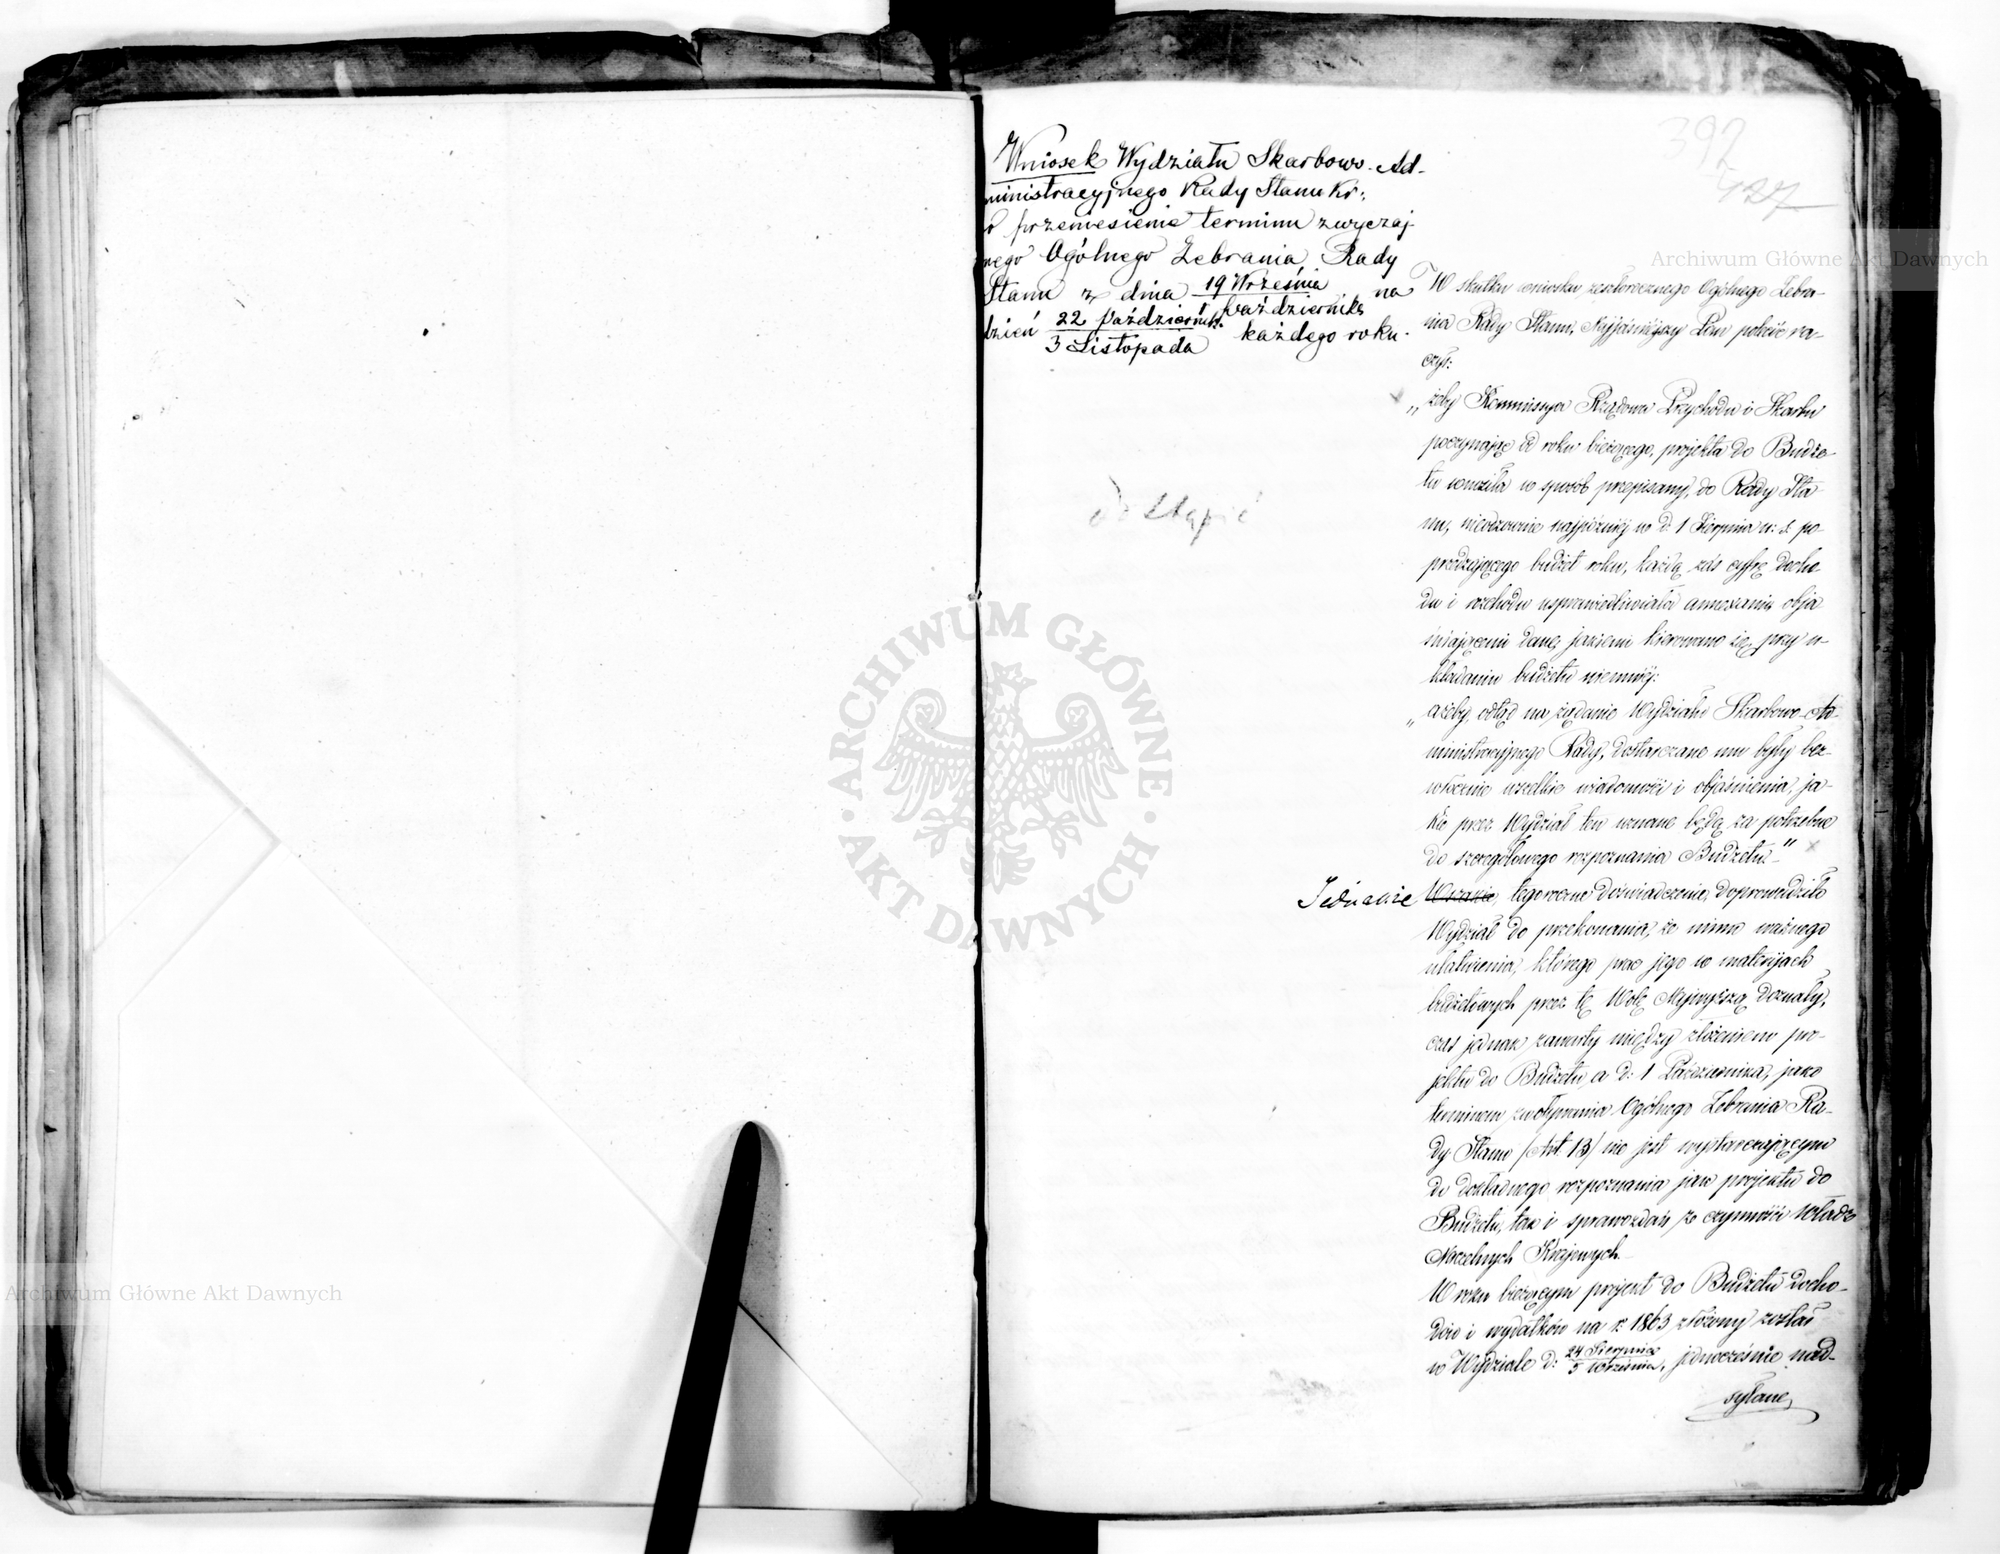 392
127
Wniosek Wydziału Skarbowo-Ad-
ministracyjnego Rady Stanu Kr:
o przeniesienie terminu zwyczaj
nego Ogólnego Zebrania Rady
Stanu z dnia 19 Września / 1 Października na
dzień 22 Październik. / 3 Listopada każdego roku.
do stąpić
W skutku wniosku zeszłorocznego Ogólnego Zebra-
nia Rady Stanu, Najjaśniejszy Pan polecić ra-
czył:
„żeby Kommissya Rządowa Przychodu i Skarbu
poczynając od roku bieżącego, projekta do Budże-
tu wnosiła w sposób przepisany, do Rady Sta-
nu, nieodzownie najpóźniej w d: 1 Sierpnia n: s. po-
przedzającego budżet roku, każdą zaś cyfrę docho-
du i rozchodu usprawiedliwiała annexami obja
śniającemi dane, jakiemi kierowano się, przy u-
kładaniu budżetu niemniej:
„ażeby, odtąd na żądanie Wydziału Skarbowo-Ad-
ministracyjnego Rady, dostarczane mu były bez-
włocznie wszelkie wiadomości i objaśnienia, ja-
kie przez Wydział ten uznane będą za potrzebne
do szczegółowego rozpoznania Budżetu"
Jednakże Wszakże, tegoroczne doświadczenie, doprowadziło
Wydział do przekonania, że mimo ważnego
ułatwienia, którego prace jego w materyjach
budżetowych przez tę Wolę Najwyższą doznały,
czas jednak zawarty między złożeniem pro-
jektu do Budżetu, a d: 1 Października, jako
terminem zwoływania Ogólnego Zebrania Ra-
dy Stanu (Art. 13) nie jest wystarczającym
do dokładnego rozpoznania jak projektu do
Budżetu, tak i sprawozdań z czynności Władz
Naczelnych Krajowych.
W roku bieżącym projekt do Budżetu docho-
dów i wydatków na r. 1863 złożony został
w Wydziale d: 24 Sierpnia / 5 Września, jednocześnie nad-
syłane
Archiwum Główne Akt Dawnych
Archiwum Główne Akt Dawnych
ARCHIWUM GŁÓWNE · AKT DAWNYCH ·